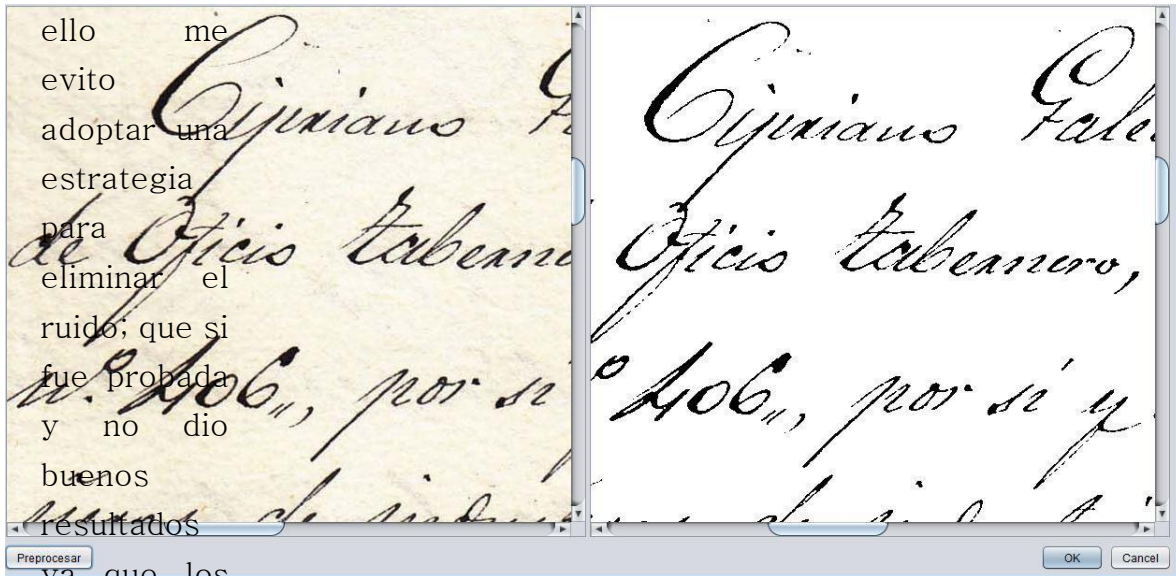 ello me
evito
adoptar una
estrategia
para
eliminar el
ruido; que si
fue probada
y no dio
buenos
resultados
ya que los
Cipriano
de Oficio tabern
nº. 406,,, por si
Cipriano Fale
Oficio tabernero,
º 406,,, por si y
Preprocesar
OK
Cancel